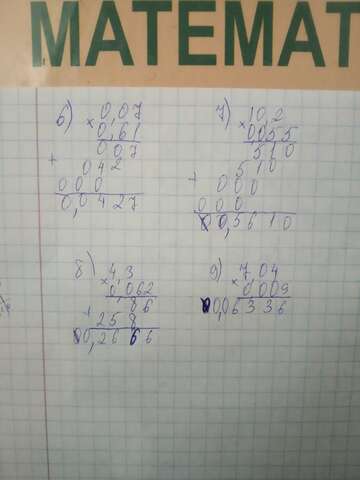 МАТЕМАТ
6) 0,07
× 0,61
0 0 7
+ 0 4 2
0 0 0
0,0 4 2 7
7) 10,2
× 0,055
5 1 0
+ 5 1 0
0 0 0
0 0 0
0 0,5 6 1 0
8) 4,3
× 0,062
8 6
+ 2 5 8
0 0,2 6 6 6
9) 7,04
× 0,009
0 0,0 6 3 3 6